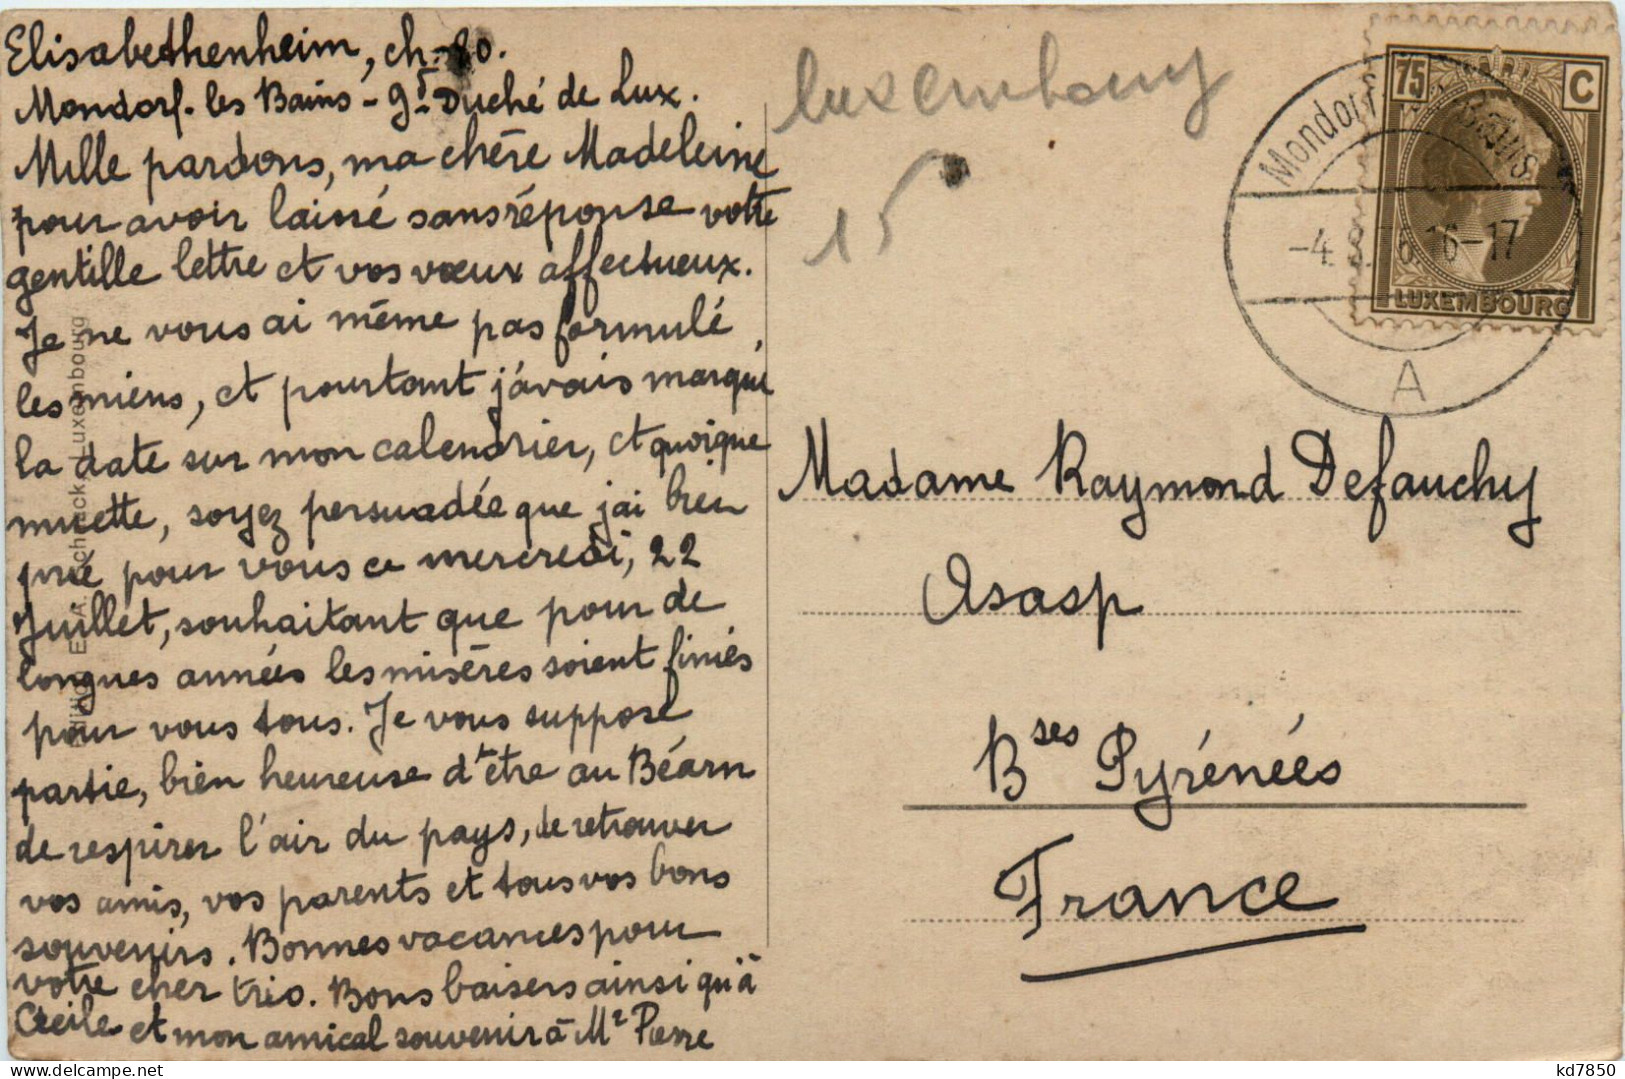 Elisabethenheim, ch. 80.
Mondorf. les Bains - Gd Duché de Lux.
Mille pardons, ma chère Madeleine
pour avoir laissé sans réponse votre
gentille lettre et vos vœux affectueux.
Je ne vous ai même pas formulé
les miens, et pourtant j'avais marqué
la date sur mon calendrier, et quoique
muette, soyez persuadée que j'ai bien
prié pour vous ce mercredi, 22
Juillet, souhaitant que pour de
longues années les misères soient finies
pour vous tous. Je vous suppose
partie, bien heureuse d'être au Béarn
de respirer l'air du pays, de retrouver
vos amis, vos parents et tous vos bons
souvenirs. Bonnes vacances pour
votre cher trio. Bons baisers ainsi qu'à
Cécile et mon amical souvenir à Mr Pierre
Luxembourg
15
75 C
LUXEMBOURG
Mondorf-les-Bains
16-17
A
Madame Raymond Defauchy
Asasp
Bses Pyrénées
France
kd7850